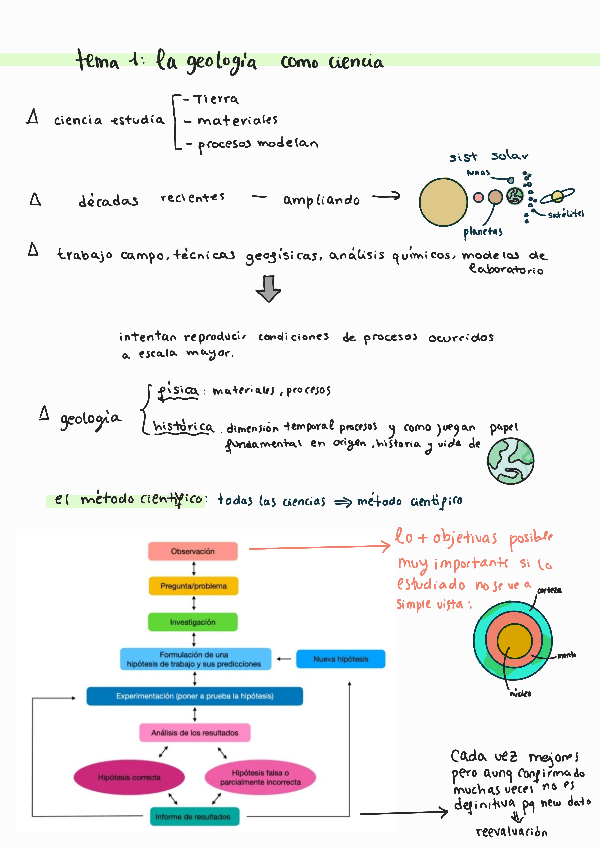 tema 1: la geología como ciencia
Δ ciencia estudia
- Tierra
- materiales
- procesos modelan
sist solar
lunas
planetas
satélites
Δ décadas recientes — ampliando →
Δ trabajo campo, técnicas geofísicas, análisis químicos, modelos de
laboratorio
intentan reproducir condiciones de procesos ocurridos
a escala mayor.
Δ geología
física: materiales, procesos
histórica: dimensión temporal procesos y como juegan papel
fundamental en origen, historia y vida de
el método científico: todas las ciencias ⇒ método científico
Observación
Pregunta/problema
Investigación
Formulación de una
hipótesis de trabajo y sus predicciones
Nueva hipótesis
Experimentación (poner a prueba la hipótesis)
Análisis de los resultados
Hipótesis correcta
Hipótesis falsa o
parcialmente incorrecta
Informe de resultados
lo + objetivas posible
muy importante si lo
estudiado no se ve a
simple vista:
corteza
manto
núcleo
Cada vez mejores
pero aunq confirmado
muchas veces no es
definitiva pq new dato
reevaluación